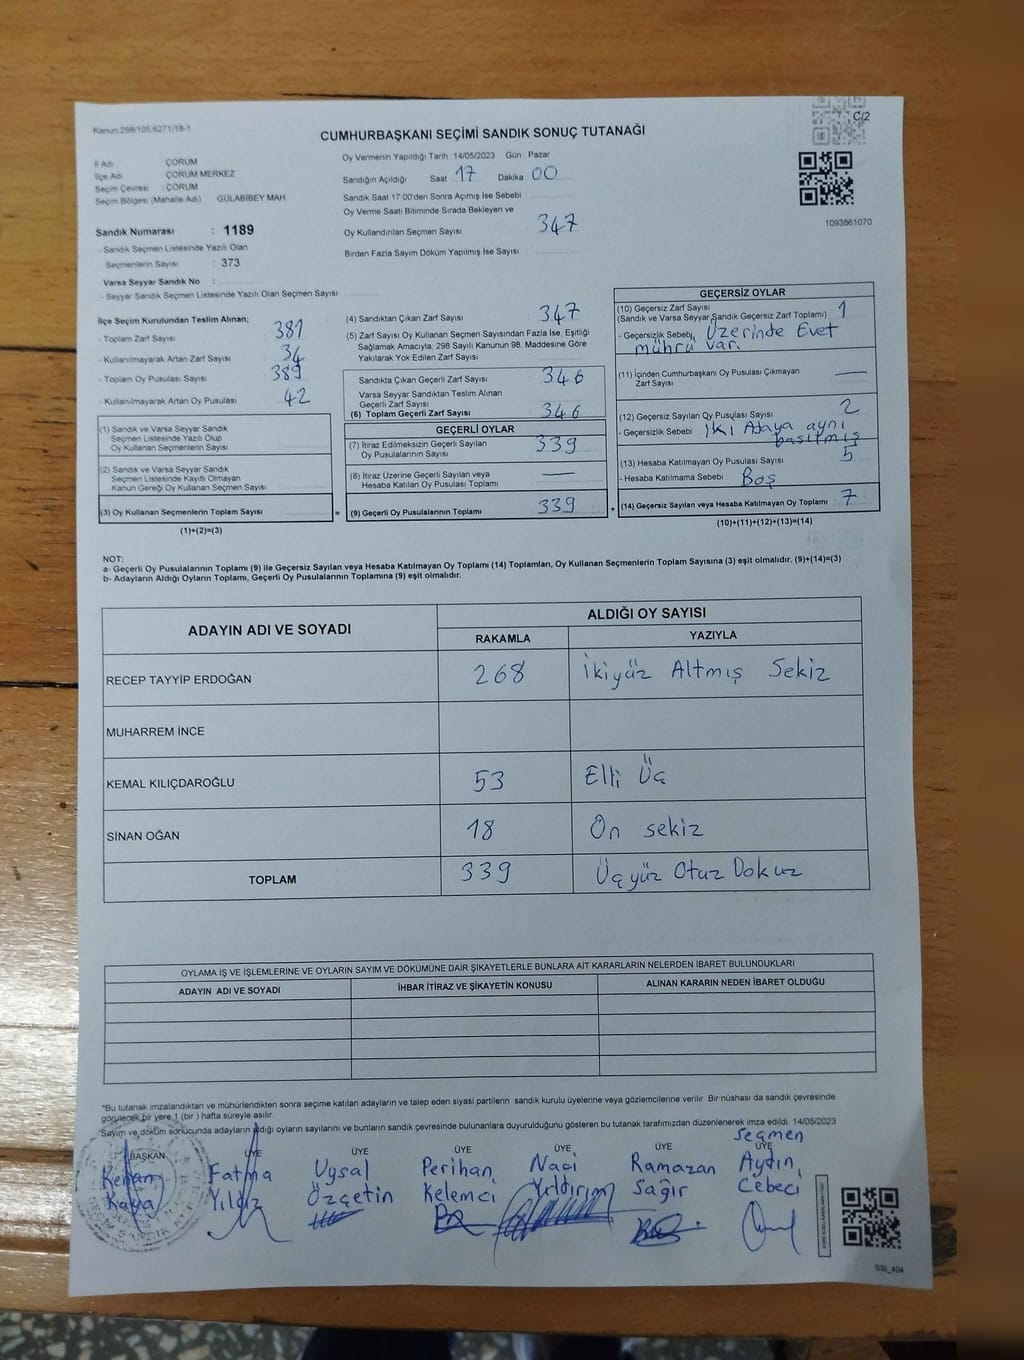 Kanun 298/105;6271/18-1
C/2
CUMHURBAŞKANI SEÇİMİ SANDIK SONUÇ TUTANAĞI
1093861070
İl Adı ÇORUM
İlçe Adı ÇORUM MERKEZ
Seçim Çevresi : ÇORUM
Seçim Bölgesi (Mahalle Adı) GÜLABİBEY MAH
Sandık Numarası : 1189
- Sandık Seçmen Listesinde Yazılı Olan
Seçmenlerin Sayısı : 373
Varsa Seyyar Sandık No :
- Seyyar Sandık Seçmen Listesinde Yazılı Olan Seçmen Sayısı
Oy Vermenin Yapıldığı Tarih 14/05/2023 Gün : Pazar
Sandığın Açıldığı Saat 17 Dakika 00
Sandık Saat 17:00'den Sonra Açımış İse Sebebi
Oy Verme Saati Bitiminde Sırada Bekleyen ve
Oy Kullandırılan Seçmen Sayısı 347
Birden Fazla Sayım Döküm Yapılmış İse Sayısı
İlçe Seçim Kurulundan Teslim Alınan;
- Toplam Zarf Sayısı 381
- Kullanılmayarak Artan Zarf Sayısı 34
- Toplam Oy Pusulası Sayısı 389
- Kullanılmayarak Artan Oy Pusulası 42
(1) Sandık ve Varsa Seyyar Sandık
Seçmen Listesinde Yazılı Olup
Oy Kullanan Seçmenlerin Sayısı
(2) Sandık ve Varsa Seyyar Sandık
Seçmen Listesinde Kayıtlı Olmayan
Kanun Gereği Oy Kullanan Seçmen Sayısı
(3) Oy Kullanan Seçmenlerin Toplam Sayısı =
(1)+(2)=(3)
(4) Sandıktan Çıkan Zarf Sayısı 347
(5) Zarf Sayısı Oy Kullanan Seçmen Sayısından Fazla İse, Eşitliği
Sağlamak Amacıyla, 298 Sayılı Kanunun 98. Maddesine Göre
Yakılarak Yok Edilen Zarf Sayısı
Sandıkta Çıkan Geçerli Zarf Sayısı 346
Varsa Seyyar Sandıktan Teslim Alınan
Geçerli Zarf Sayısı
(6) Toplam Geçerli Zarf Sayısı 346
GEÇERLİ OYLAR
(7) İtiraz Edilmeksizin Geçerli Sayılan
Oy Pusulalarının Sayısı 339
(8) İtiraz Üzerine Geçerli Sayılan veya
Hesaba Katılan Oy Pusulası Toplamı —
(9) Geçerli Oy Pusulalarının Toplamı 339 +
GEÇERSİZ OYLAR
(10) Geçersiz Zarf Sayısı
(Sandık ve Varsa Seyyar Sandık Geçersiz Zarf Toplamı) 1
- Geçersizlik Sebebi, Üzerinde Evet
mührü var.
(11) İçinden Cumhurbaşkanı Oy Pusulası Çıkmayan
Zarf Sayısı —
(12) Geçersiz Sayılan Oy Pusulası Sayısı 2
- Geçersizlik Sebebi İki Adaya aynı
basılmış
(13) Hesaba Katılmayan Oy Pusulası Sayısı 5
- Hesaba Katılmama Sebebi Boş
(14) Geçersiz Sayılan veya Hesaba Katılmayan Oy Toplamı 7
(10)+(11)+(12)+(13)=(14)
NOT:
a- Geçerli Oy Pusulalarının Toplamı (9) ile Geçersiz Sayılan veya Hesaba Katılmayan Oy Toplamı (14) Toplamları, Oy Kullanan Seçmenlerin Toplam Sayısına (3) eşit olmalıdır. (9)+(14)=(3)
b- Adayların Aldığı Oyların Toplamı, Geçerli Oy Pusulalarının Toplamına (9) eşit olmalıdır.
ADAYIN ADI VE SOYADI ALDIĞI OY SAYISI
RAKAMLA YAZIYLA
RECEP TAYYİP ERDOĞAN 268 İkiyüz Altmış Sekiz
MUHARREM İNCE
KEMAL KILIÇDAROĞLU 53 Elli Üç
SİNAN OĞAN 18 On sekiz
TOPLAM 339 Üçyüz Otuz Dokuz
OYLAMA İŞ VE İŞLEMLERİNE VE OYLARIN SAYIM VE DÖKÜMÜNE DAİR ŞİKAYETLERLE BUNLARA AİT KARARLARIN NELERDEN İBARET BULUNDUKLARI
ADAYIN ADI VE SOYADI İHBAR İTİRAZ VE ŞİKAYETİN KONUSU ALINAN KARARIN NEDEN İBARET OLDUĞU
*Bu tutanak imzalandıktan ve mühürlendikten sonra seçime katılan adayların ve talep eden siyasi partilerin sandık kurulu üyelerine veya gözlemcilerine verilir. Bir nüshası da sandık çevresinde
görülecek bir yere 1 (bir ) hafta süreyle asılır.
Sayım ve döküm sonucunda adayların aldığı oyların sayılarını ve bunların sandık çevresinde bulunanlara duyurulduğunu gösteren bu tutanak tarafımızdan düzenlenerek imza edildi. 14/05/2023
Seçmen
BAŞKAN ÜYE ÜYE ÜYE ÜYE ÜYE ÜYE
Kenan Fatma Uysal Perihan Naci Ramazan Aydın
Kaya Yıldız Özçetin Kelemci Yıldırım Sağır Cebeci
SSI_404